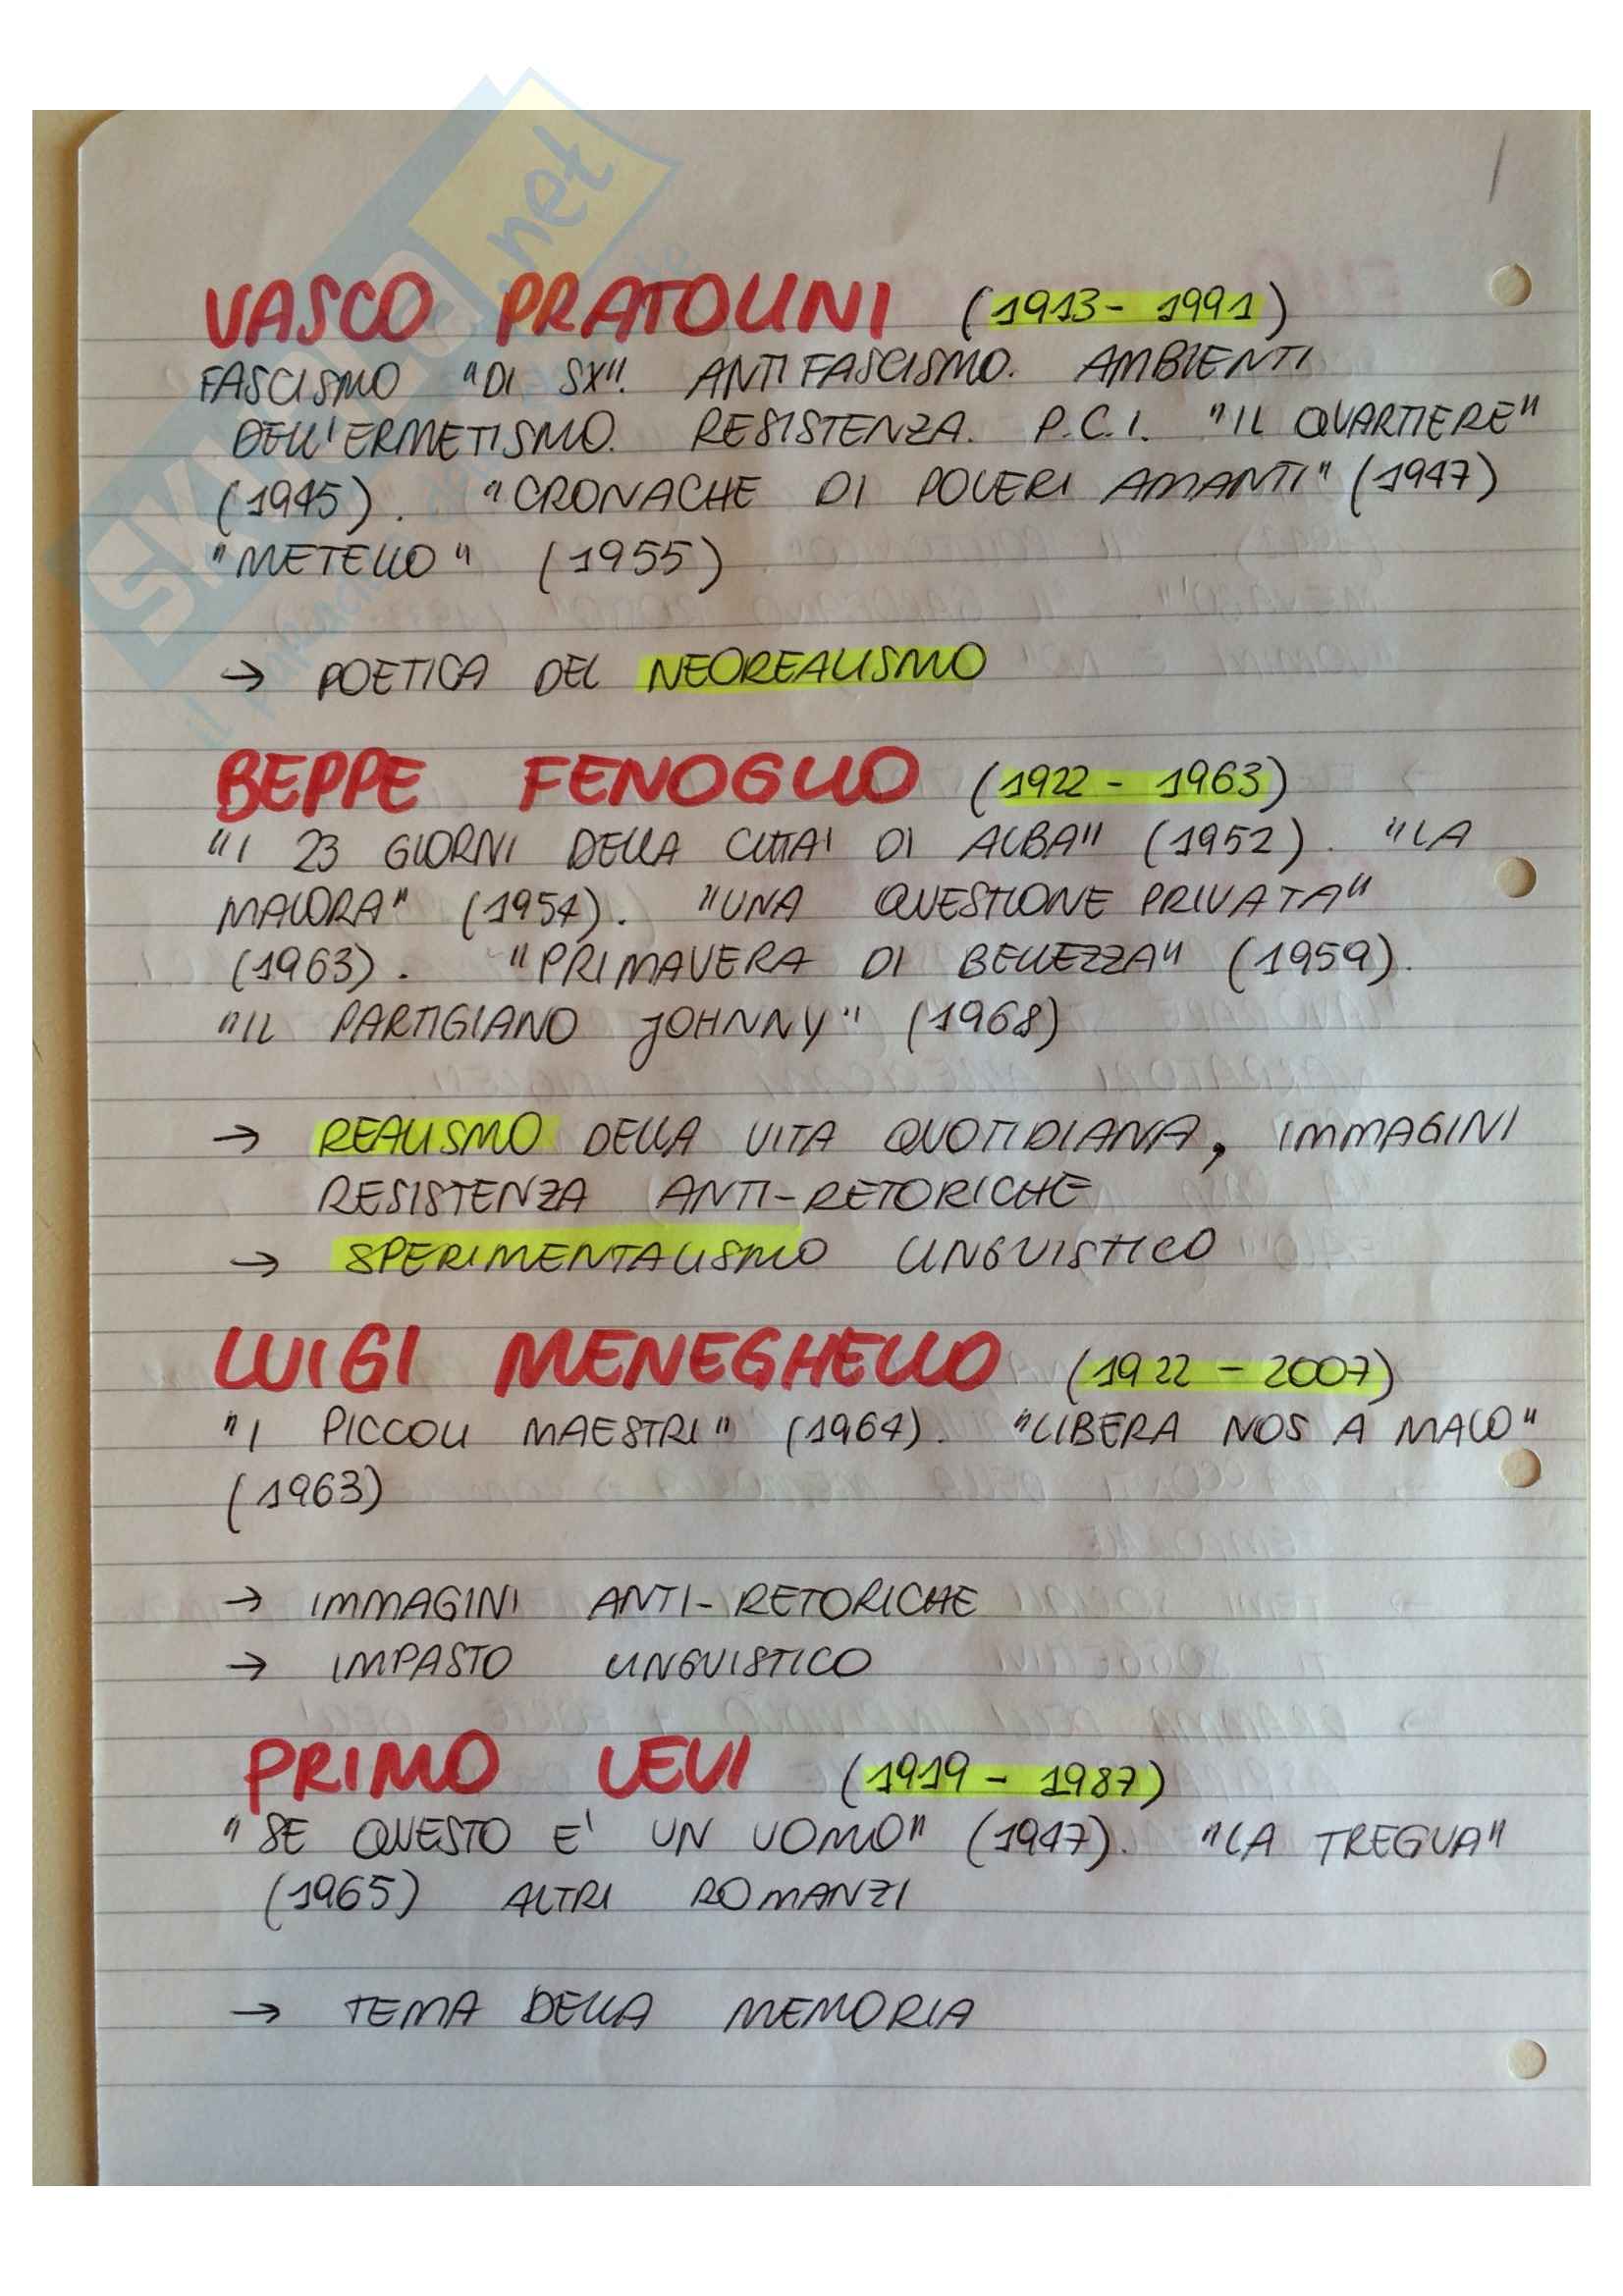 SKUOLA.net
VASCO PRATOLINI (1913-1991)
FASCISMO "DI SX". ANTIFASCISMO. AMBIENTI
DELL'ERMETISMO. RESISTENZA. P.C.I. "IL QUARTIERE"
(1945). "CRONACHE DI POVERI AMANTI" (1947)
"METELLO" (1955)
→ POETICA DEL NEOREALISMO
BEPPE FENOGLIO (1922 - 1963)
"I 23 GIORNI DELLA CITTA' DI ALBA" (1952). "LA
MALORA" (1954). "UNA QUESTIONE PRIVATA"
(1963). "PRIMAVERA DI BELLEZZA" (1959).
"IL PARTIGIANO JOHNNY" (1968)
→ REALISMO DELLA VITA QUOTIDIANA, IMMAGINI
RESISTENZA ANTI-RETORICHE
→ SPERIMENTALISMO LINGUISTICO
LUIGI MENEGHELLO (1922 - 2007)
"I PICCOLI MAESTRI" (1964). "LIBERA NOS A MALO"
(1963)
→ IMMAGINI ANTI-RETORICHE
→ IMPASTO LINGUISTICO
PRIMO LEVI (1919 - 1987)
"SE QUESTO E' UN UOMO" (1947). "LA TREGUA"
(1965) ALTRI ROMANZI
→ TEMA DELLA MEMORIA